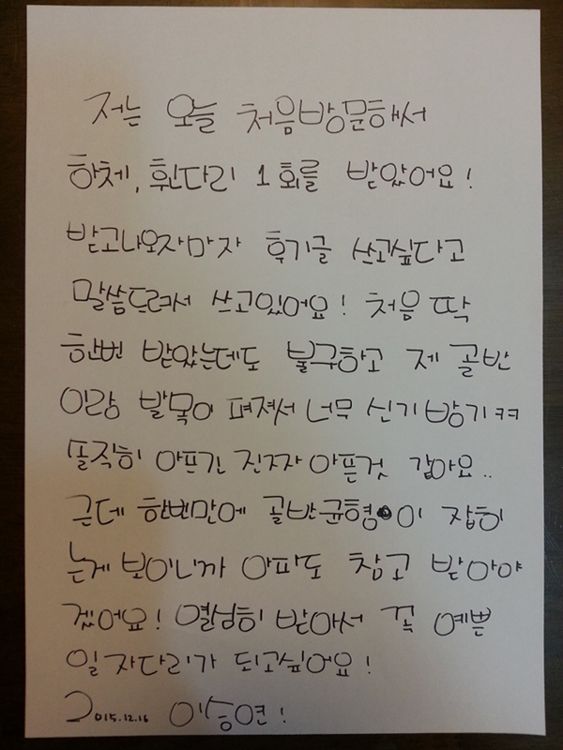 저는 오늘 처음방문해서
하체, 휜다리 1회를 받았어요!
받고나오자마자 후기글 쓰고싶다고
말씀드려서 쓰고있어요! 처음 딱
한번 받았는데도 불구하고 제 골반
이랑 발목이 펴져서 너무 신기방기ㅋㅋ
솔직히 아프긴 진짜 아픈것 같아요..
근데 한번만에 골반균형이 잡히
는게 보이니까 아파도 참고 받아야
겠어요! 열심히 받아서 꼭 예쁜
일자다리가 되고싶어요!
2015.12.16 이승연!